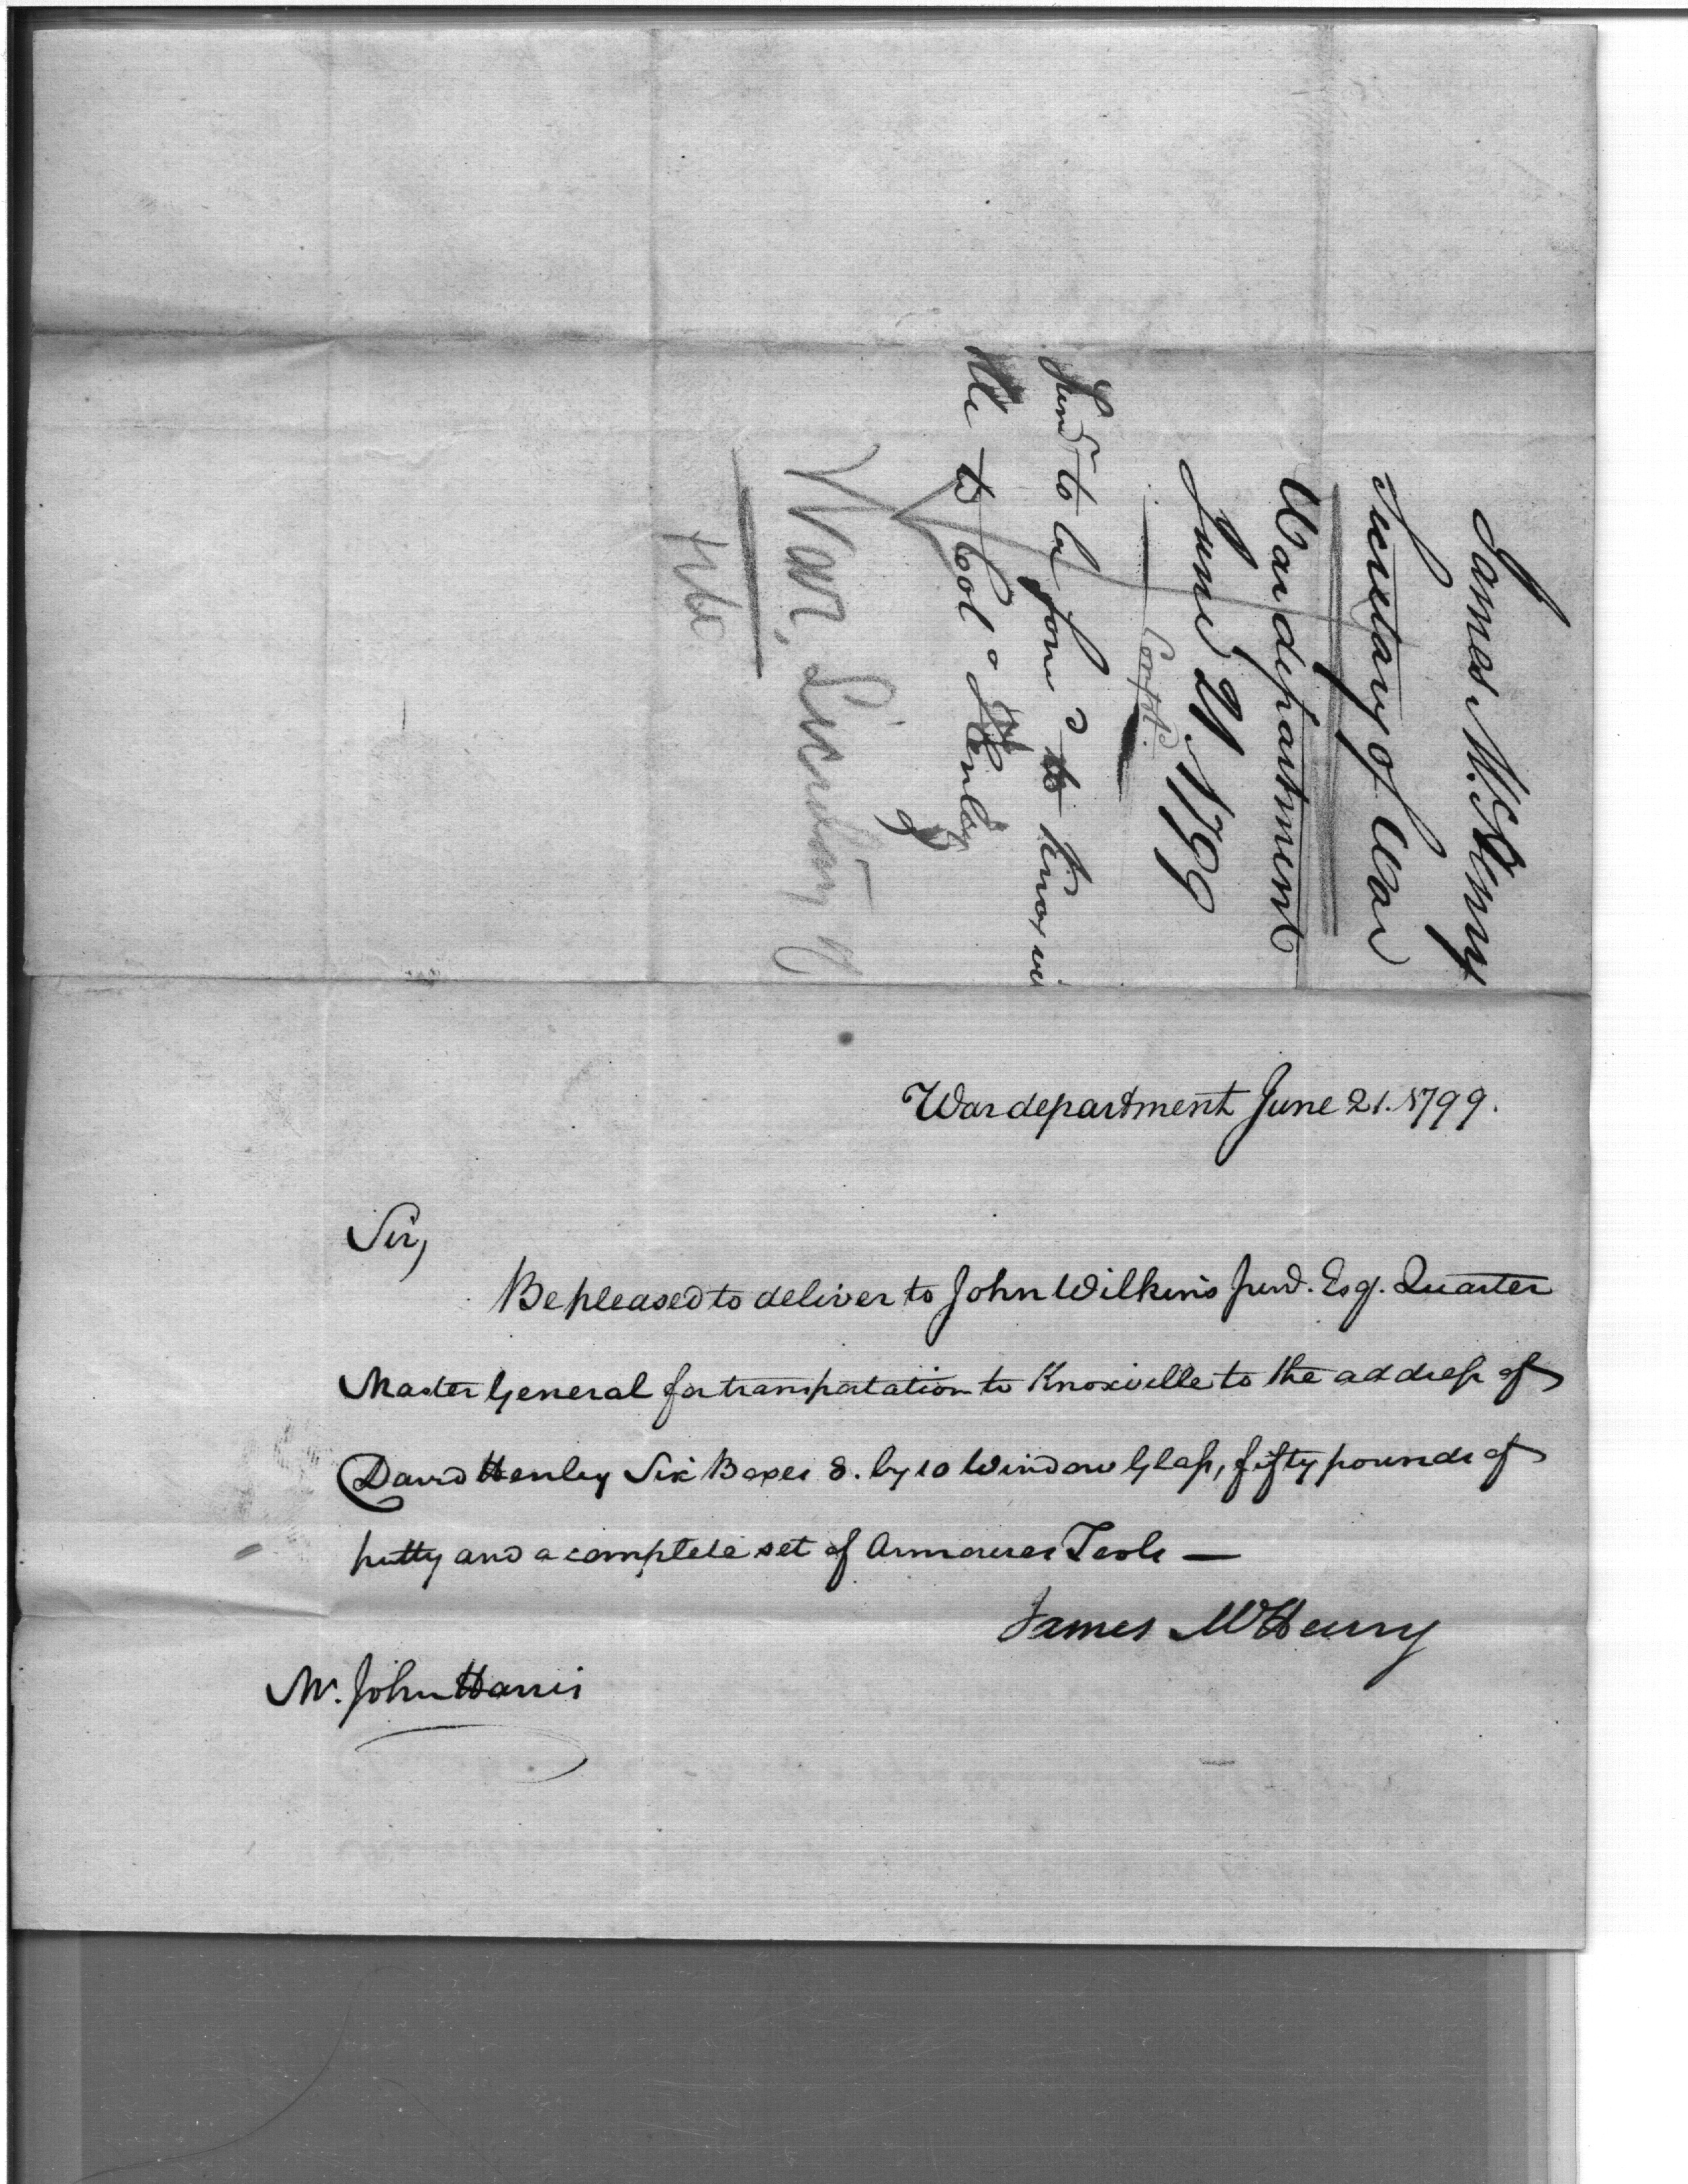 James McHenry
Secretary of War
War department
June 21. 1799
Send to be forwd to Knoxvi
lle to Colo Henley
War, Secretary
War department June 21. 1799.
Sir,
Be pleased to deliver to John Wilkins junr. Esq. Quarter
Master General for transportation to Knoxville to the address of
David Henley Six Boxes 8. by 10 Window Glass, fifty pounds of
putty and a complete set of Armourer Tools —
James McHenry
Mr. John Harris